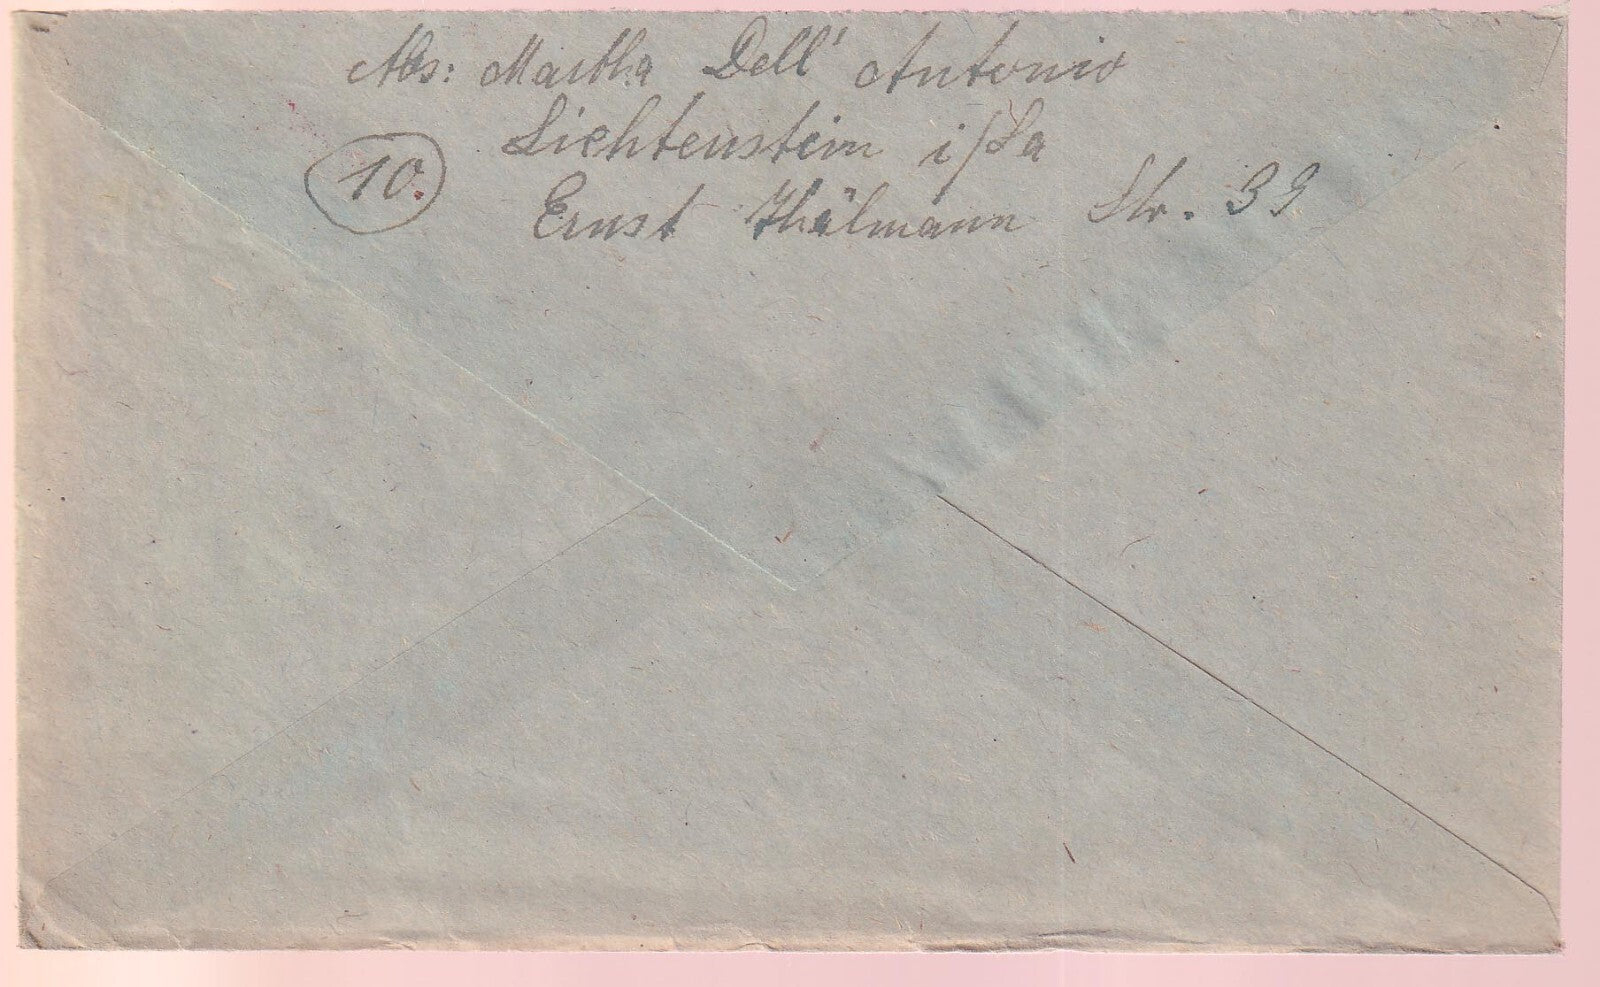 Abs: Martha Dell' Antonio
Lichtenstein i/Sa
(10.)
Ernst Thälmann Str. 39